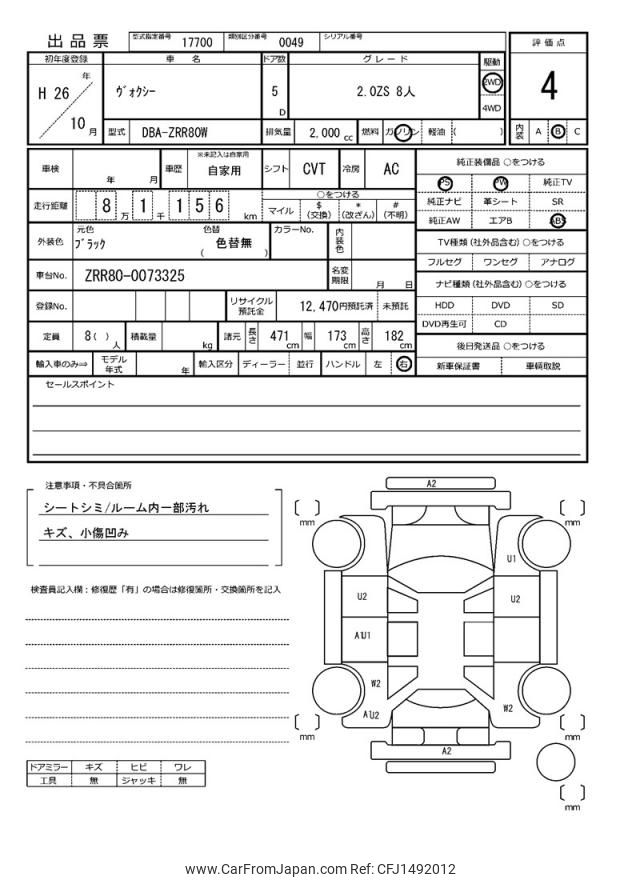 出品票 型式指定番号 17700 類別区分番号 0049 シリアル番号
評価点
4
内装 A B C
初年度登録 車名 ドア数 グレード 駆動
H 26 年 ヴォクシー 5 D 2.0ZS 8人 2WD
4WD
10 月 型式 DBA-ZRR80W 排気量 2,000 cc 燃料 ガソリン 軽油 ( )
車検 年 月 車歴 ※未記入は自家用 自家用 シフト CVT 冷房 AC
走行距離 8 万 1 千 1 5 6 km
○をつける
マイル $(交換) *(改ざん) #(不明)
外装色 元色 ブラック 色替 ( 色替無 ) カラーNo. 内装色
車台No. ZRR80-0073325 名変期限 月 日
登録No. リサイクル預託金 12,470円預託済 未預託
定員 8( ) 人 積載量 kg 諸元 長さ 471 cm 幅 173 cm 高さ 182 cm
輸入車のみ⇒ モデル年式 年 輸入区分 ディーラー 並行 ハンドル 左 右
純正装備品 ○をつける
PS PW 純正TV
純正ナビ 革シート SR
純正AW エアB ABS
TV種類(社外品含む) ○をつける
フルセグ ワンセグ アナログ
ナビ種類(社外品含む) ○をつける
HDD DVD SD
DVD再生可 CD
後日発送品 ○をつける
新車保証書 車輌取説
セールスポイント
注意事項・不具合箇所
シートシミ/ルーム内一部汚れ
キズ、小傷凹み
検査員記入欄:修復歴「有」の場合は修復箇所・交換箇所を記入
ドアミラー キズ ヒビ ワレ
工具 無 ジャッキ 無
A2
mm
mm
U1
U2
U2
A1U1
W2
A1U2
W2
mm
mm
A2
mm
www.CarFromJapan.com Ref: CFJ1492012